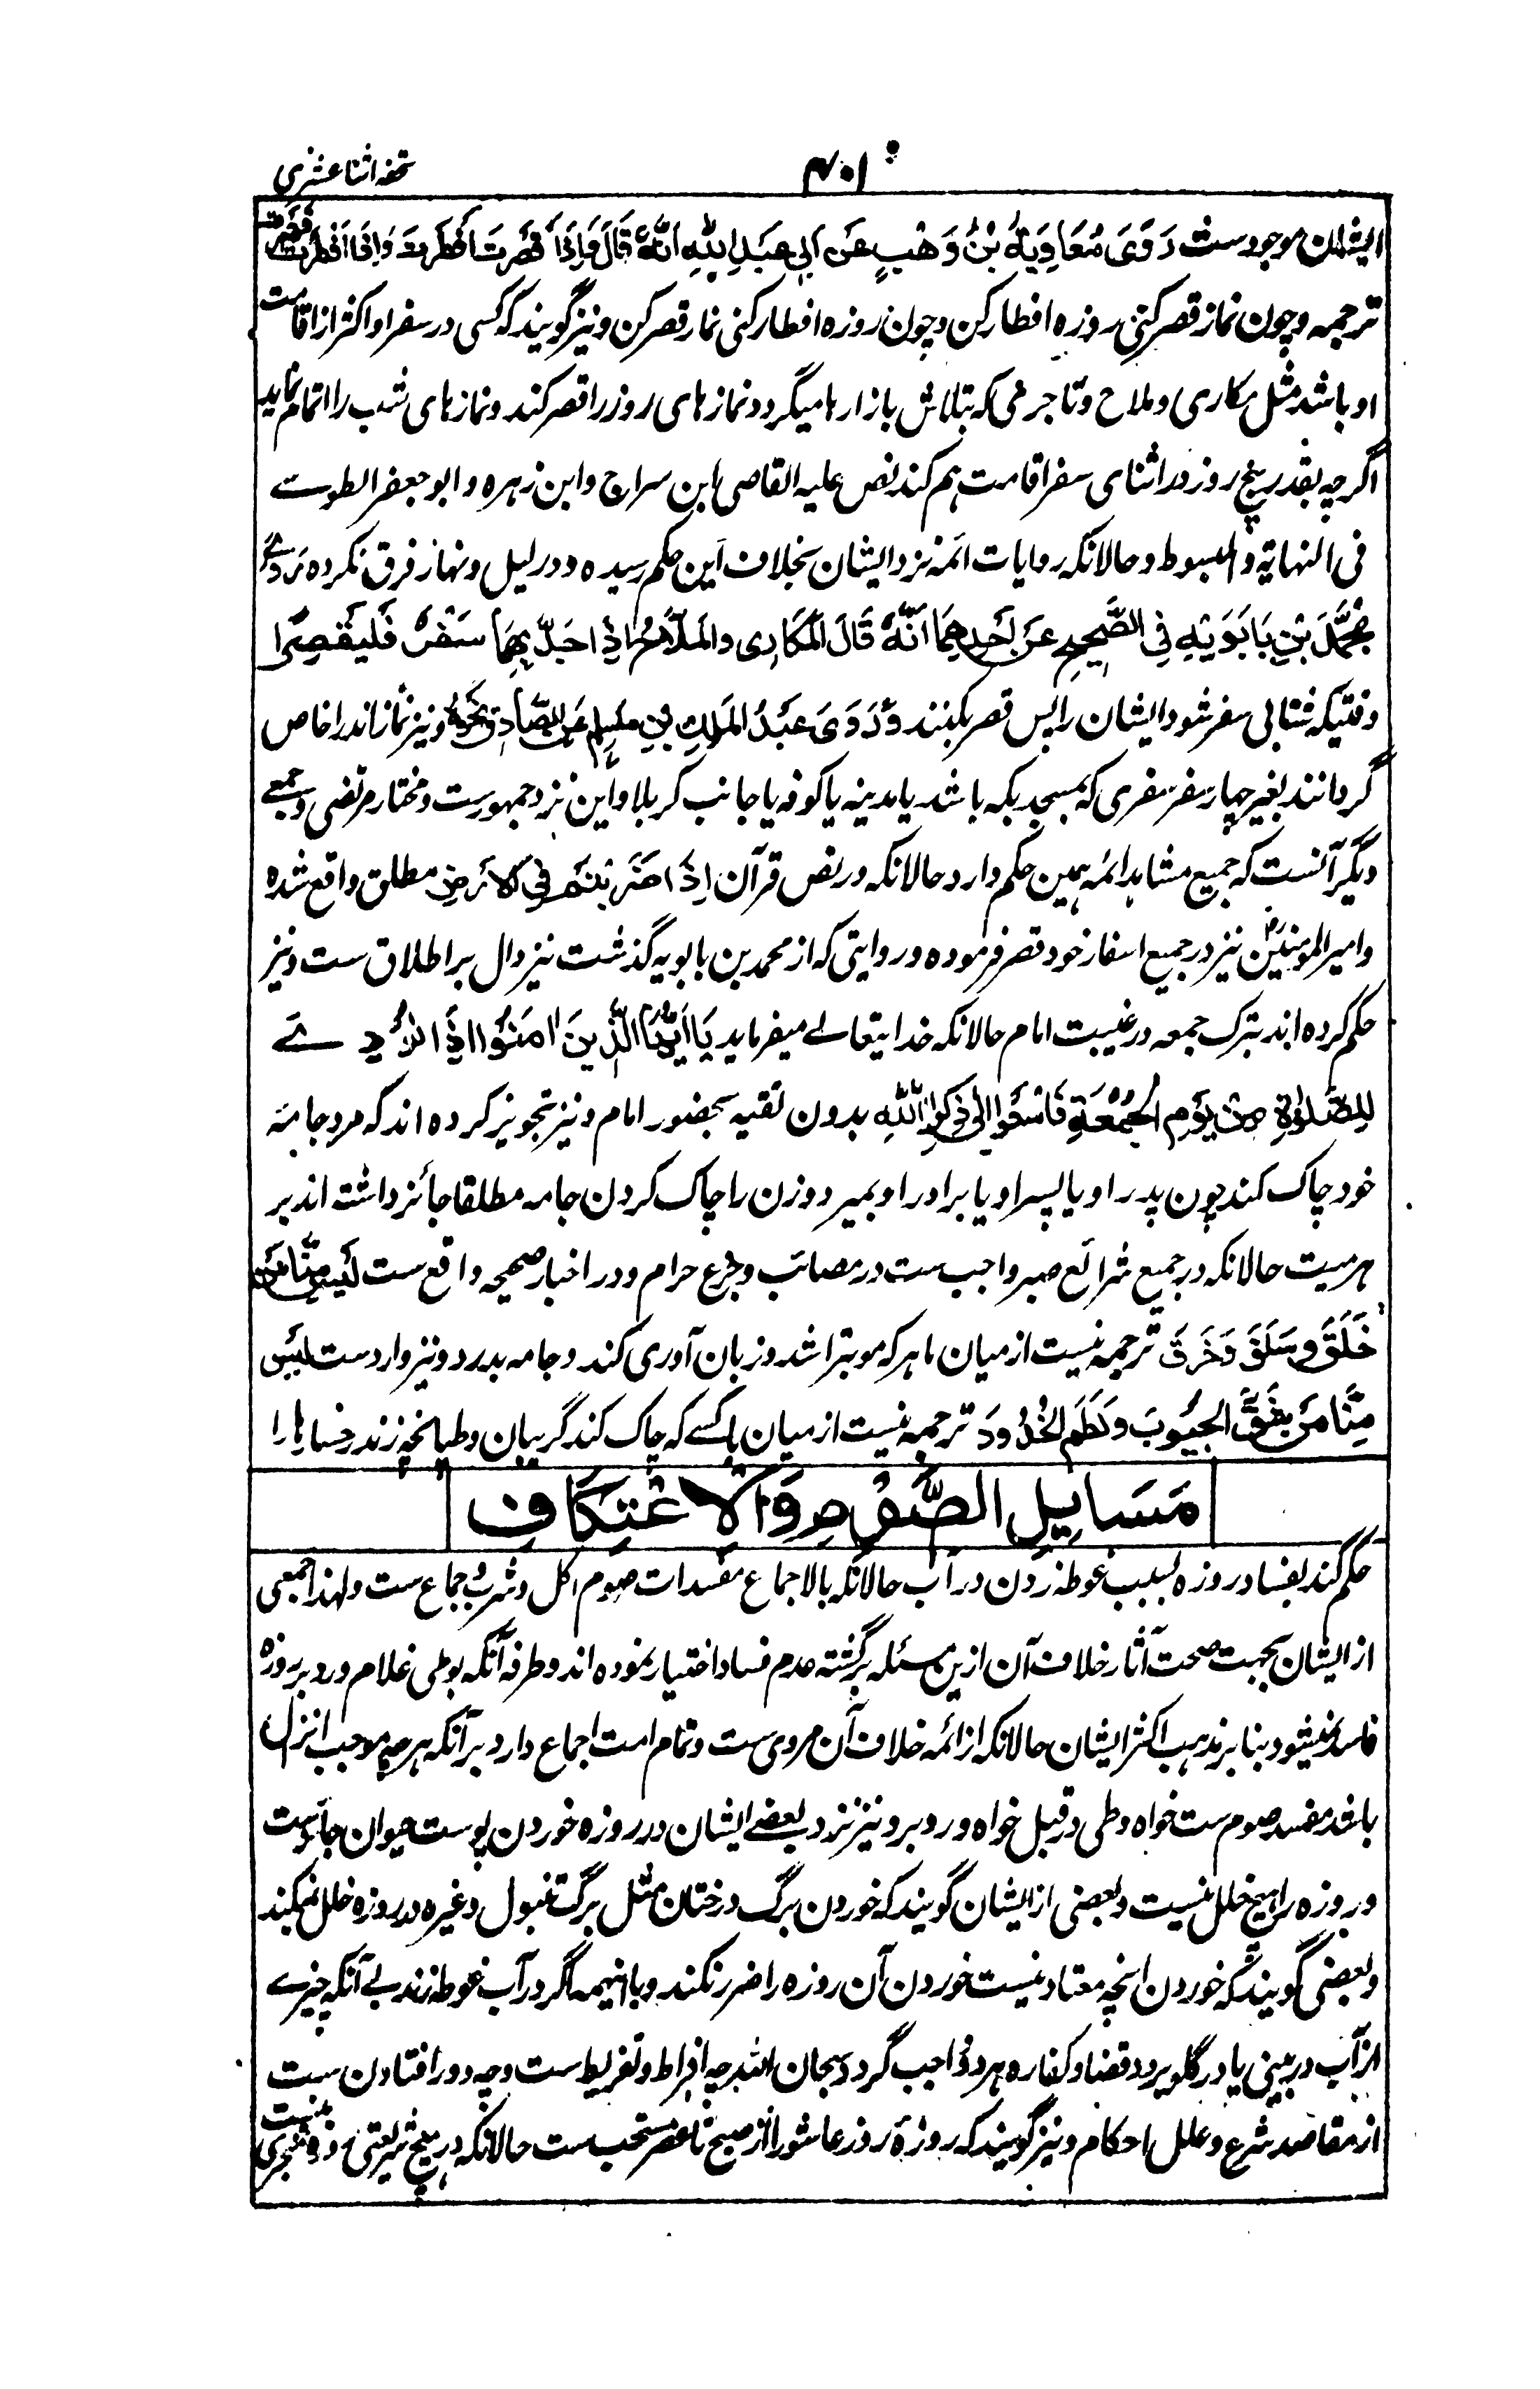 تحفه اثنا عشری
۴۰۱
ایشان موجودست رَوَیَ مُعَاوِیَةُ بْنُ وَهْبٍ عَن اَبِی عَبدِ اللهِ اَنَّهُ قَالَ وَاِذَا قَصَرتَ اَفطَرتَ وَاِذَا اَفطَرتَ قَصَرتَ
ترجمه و چون نماز قصر کنی روزه افطار کن و چون روزه افطار کنی نماز قصر کن و نیز گویند که کسی در سفر او اکثر از اقامت
او باشد مثل مکاری و ملاح و تاجری که بتلاش بازارها میگردد نمازهای روز را قصر کند و نمازهای شب را اتمام نماید
اگرچه بقدر پنج روز در اثنای سفر اقامت هم کند نص علیه القاضی ابن سراج و ابن زهره و ابو جعفر الطوسے
فی النهایة و المبسوط و حالانکه روایات ائمه نزد ایشان بخلاف این حکم رسیده و در لیل و نهار فرق نکرده رَوَیٰ
مُحَمَّدَ بْنِ بَابَوَیْهِ فِی الصَّحِیحِ عَن اَحَدِهِمَا اَنَّهُ قَالَ المُکَارِی وَالمَلَّاحُ اِذَا جَدَّ بِهِمَا سَفَرٌ فَلیَقصِرَا
وقتیکه شتابی سفر شود ایشان را پس قصر بکنند وَرَوَیَ عَبدُ المَلِکِ بنِ مسلم عَنِ الصَّادِقِ نَحوَهُ و نیز نماز اندر خاص
گردانند بغیر چهار سفر سفری که بمسجد مکه باشد یا مدینه یا کوفه یا جانب کربلا و این نزد جمهورست و مختار مرتضی و جمعے
دیگر آنست که جمیع مشاهد ائمه همین حکم دارد حالانکه در نص قرآن اِذَا ضَرَبْتُم فِی الاَرضِ مطلق واقع شده
و امیر المومنین رض نیز در جمیع اسفار خود قصر فرموده و روایتی که از محمد بن بابویه گذشت نیز دال بر اطلاق ست و نیز
حکم کرده اند بترک جمعه در غیبت امام حالانکه خدایتعالے میفرماید یَا اَیُّهَا الَّذِینَ اٰمَنُوا اِذَا نُودِیَ
لِلصَّلٰوةِ مِن یَومِ الجُمُعَةِ فَاسعَوا اِلٰی ذِکرِ اللهِ بدون تقیه بحضور امام و نیز تجویز کرده اند که مرد جامه
خود چاک کند چون پدر او یا پسر او یا برادر او بمیرد و زن را چاک کردن جامه مطلقا جائز داشته اند بر
هر میت حالانکه در جمیع شرائع صبر واجب ست در مصائب و جزع حرام و در اخبار صحیحه واقع ست لَیسَ مِنَّا مَن
حَلَقَ وَسَلَقَ وَخَرَقَ ترجمه نیست از میان ما هر که مو بتراشد و زبان آوری کند و جامه بدرد و نیز واردست لَیسَ
مِنَّا مَن شَقَّ الجُیُوبَ وَلَطَمَ الخُدُودَ ترجمه نیست از میان ما کسے که چاک کند گریبان و طپانچه زند رخسارها را
مَسَایِلِ الصَّوْمِ وَالْاِعْتِکَافِ
حکم کنند بفساد روزه بسبب غوطه زدن در آب حالانکه بالاجماع مفسدات صوم اکل و شرب و جماع ست و لهذا جمعی
از ایشان بجهت صحت آثار خلاف آن ازین مسئله برگشته عدم فساد اختیار نموده اند و طرفه آنکه بوطی غلام در دبر روزه
فاسد نمیشود بنا بر مذهب اکثر ایشان حالانکه از ائمه خلاف آن مروی ست و تمام امت اجماع دارد برآنکه هرچه موجب انزال
باشد مفسد صوم ست خواه وطی در قبل خواه در دبر و نیز نزد بعضے ایشان در روزه خوردن پوست حیوان جائزست
و روزه را هیچ خلل نیست و بعضی از ایشان گویند که خوردن برگ درختان مثل برگ تنبول و غیره در روزه خلل نمیکند
و بعضی گویند که خوردن انچه معتاد نیست خوردن آن روزه را ضرر نکند و با اینهمه اگر در آب غوطه زند بے آنکه چیزے
از آب در بینی یا در گلو برود قضا و کفاره هر دو واجب گردد سبحان الله چه افراط و تفریط ست و چه دور افتادن ست
از مقاصد شرع و علل احکام و نیز گویند که روزهٔ روز عاشورا از صبح تا عصر مستحب ست حالانکه در هیچ شریعتی